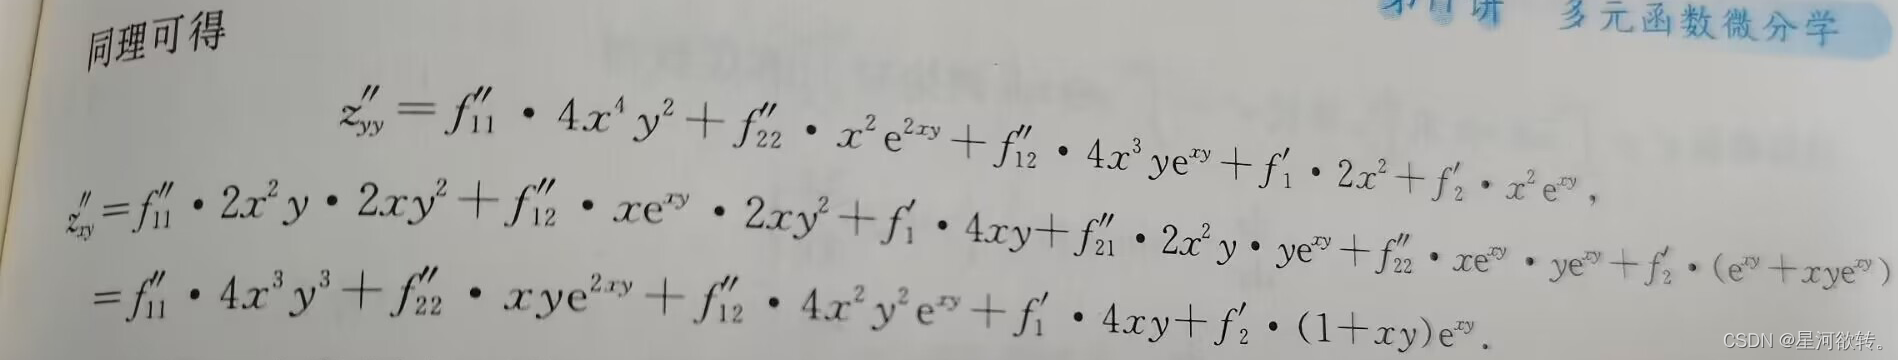 第11讲 多元函数微分学
同理可得
z''_{yy} = f''_{11} · 4x^4 y^2 + f''_{22} · x^2 e^{2xy} + f''_{12} · 4x^3 ye^{xy} + f'_1 · 2x^2 + f'_2 · x^2 e^{xy},
z''_{xy} = f''_{11} · 2x^2 y · 2xy^2 + f''_{12} · xe^{xy} · 2xy^2 + f'_1 · 4xy + f''_{21} · 2x^2 y · ye^{xy} + f''_{22} · xe^{xy} · ye^{xy} + f'_2 · (e^{xy} + xye^{xy})
= f''_{11} · 4x^3 y^3 + f''_{22} · xye^{2xy} + f''_{12} · 4x^2 y^2 e^{xy} + f'_1 · 4xy + f'_2 · (1+xy)e^{xy}.
CSDN @星河欲转。